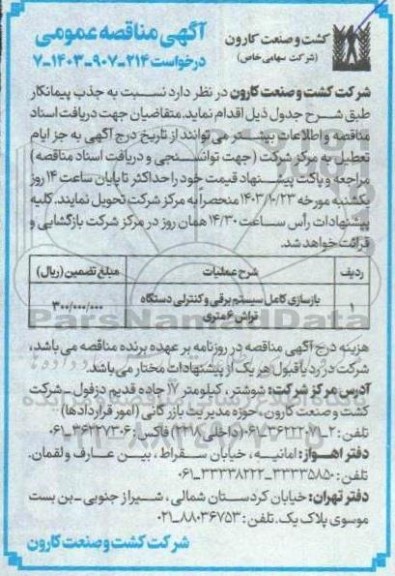 کشت و صنعت کارون
(شرکت سهامی خاص)
آگهی مناقصه عمومی
درخواست ۲۱۴-۹۰۷-۱۴۰۳-۷
شرکت کشت و صنعت کارون در نظر دارد نسبت به جذب پیمانکار
طبق شرح جدول ذیل اقدام نماید. متقاضیان جهت دریافت اسناد
مناقصه و اطلاعات بیشتر می توانند از تاریخ درج آگهی به جز ایام
تعطیل به مرکز شرکت (جهت توانسنجی و دریافت اسناد مناقصه)
مراجعه و پاکت پیشنهاد قیمت خود را حداکثر تا پایان ساعت ۱۴ روز
یکشنبه مورخه ۱۴۰۳/۱۰/۲۳ منحصراً به مرکز شرکت تحویل نمایند. کلیه
پیشنهادات رأس ساعت ۱۴/۳۰ همان روز در مرکز شرکت بازگشایی و
قرائت خواهد شد.
ردیف شرح عملیات مبلغ تضمین (ریال)
۱ بازسازی کامل سیستم برقی و کنترلی دستگاه تراش ۶ متری ۳۰۰/۰۰۰/۰۰۰
ParsNamadData
هزینه درج آگهی مناقصه در روزنامه بر عهده برنده مناقصه می باشد،
شرکت در رد یا قبول هر یک از پیشنهادات مختار می باشد.
آدرس مرکز شرکت: شوشتر، کیلومتر ۱۷ جاده قدیم دزفول - شرکت
کشت و صنعت کارون، حوزه مدیریت بازرگانی (امور قراردادها)
تلفن: ۲-۳۶۲۲۲۰۷۱-۰۶۱ (داخلی ۲۲۱۸) فاکس: ۳۶۲۲۷۳۰۶-۰۶۱
دفتر اهواز: امانیه، خیابان سقراط، بین عارف و لقمان.
تلفن: ۳۳۳۳۵۸۵۰-۳۳۳۳۸۲۲۲-۰۶۱
دفتر تهران: خیابان کردستان شمالی، شیراز جنوبی - بن بست
موسوی پلاک یک. تلفن: ۸۸۰۳۶۷۵۳-۰۲۱
شرکت کشت و صنعت کارون